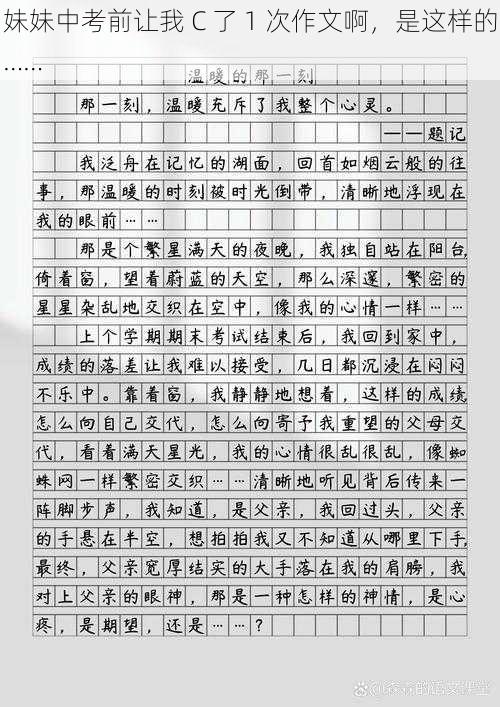 妹妹中考前让我 C 了 1 次作文啊，是这样的
......
温暖的那一刻
那一刻，温暖充斥了我整个心灵。
——题记
我泛舟在记忆的湖面，回首如烟云般的往
事，那温暖的时刻被时光倒带，清晰地浮现在
我的眼前……
那是个繁星满天的夜晚，我独自站在阳台，
倚着窗，望着蔚蓝的天空，那么深邃，繁密的
星星杂乱地交织在空中，像我的心情一样……
上个学期期末考试结束后，我回到家中，
成绩的落差让我难以接受，几日都沉浸在闷闷
不乐中。靠着窗，我静静地想着，这样的成绩
怎么向自己交代，怎么向寄予我重望的父母交
代，看着满天星光，我的心情很乱很乱，像蜘
蛛网一样繁密交织……清晰地听见背后传来一
阵脚步声，我知道，是父亲，我回过头，父亲
的手悬在半空，想拍拍我又不知道从哪里下手，
最终，父亲宽厚结实的大手落在我的肩膀，我
对上父亲的眼神，那是一种怎样的神情，是心
疼，是期望，还是……？
@森森的语文课堂